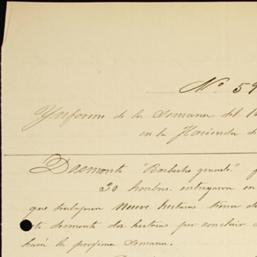 Nº 59
Ynforme de la Semana del 1
en la Hacienda d
Desmonte "Barbecho grande"
20 hombres entregaron en
que trabajaron nueve hectaras
desmonte dos hectaras por concluir
hará la proxima Semana.